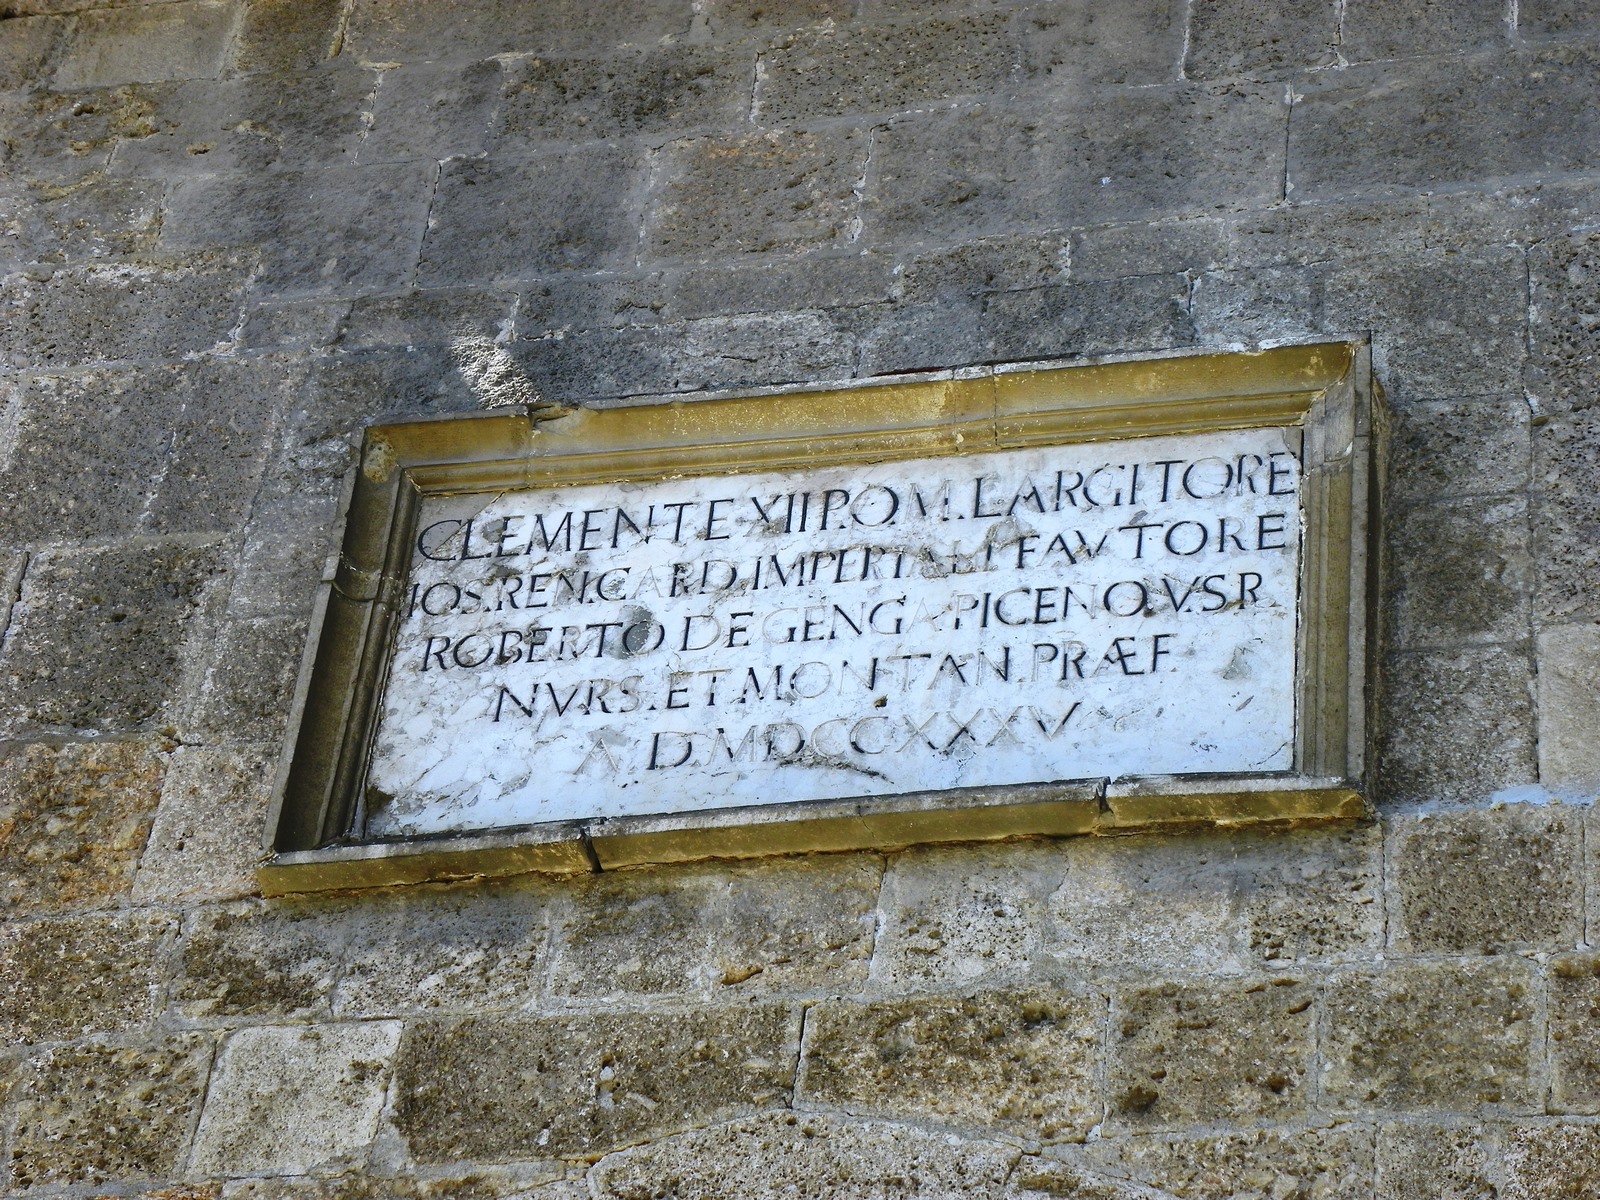 CLEMENTE XII P.O.M. LARGITORE
IOS.REN.CARD.IMPERIALI FAVTORE
ROBERTO DE GENGA PICENO.V.S.R.
NVRS.ET MONTAN.PRÆF.
A.D.MDCCXXXV